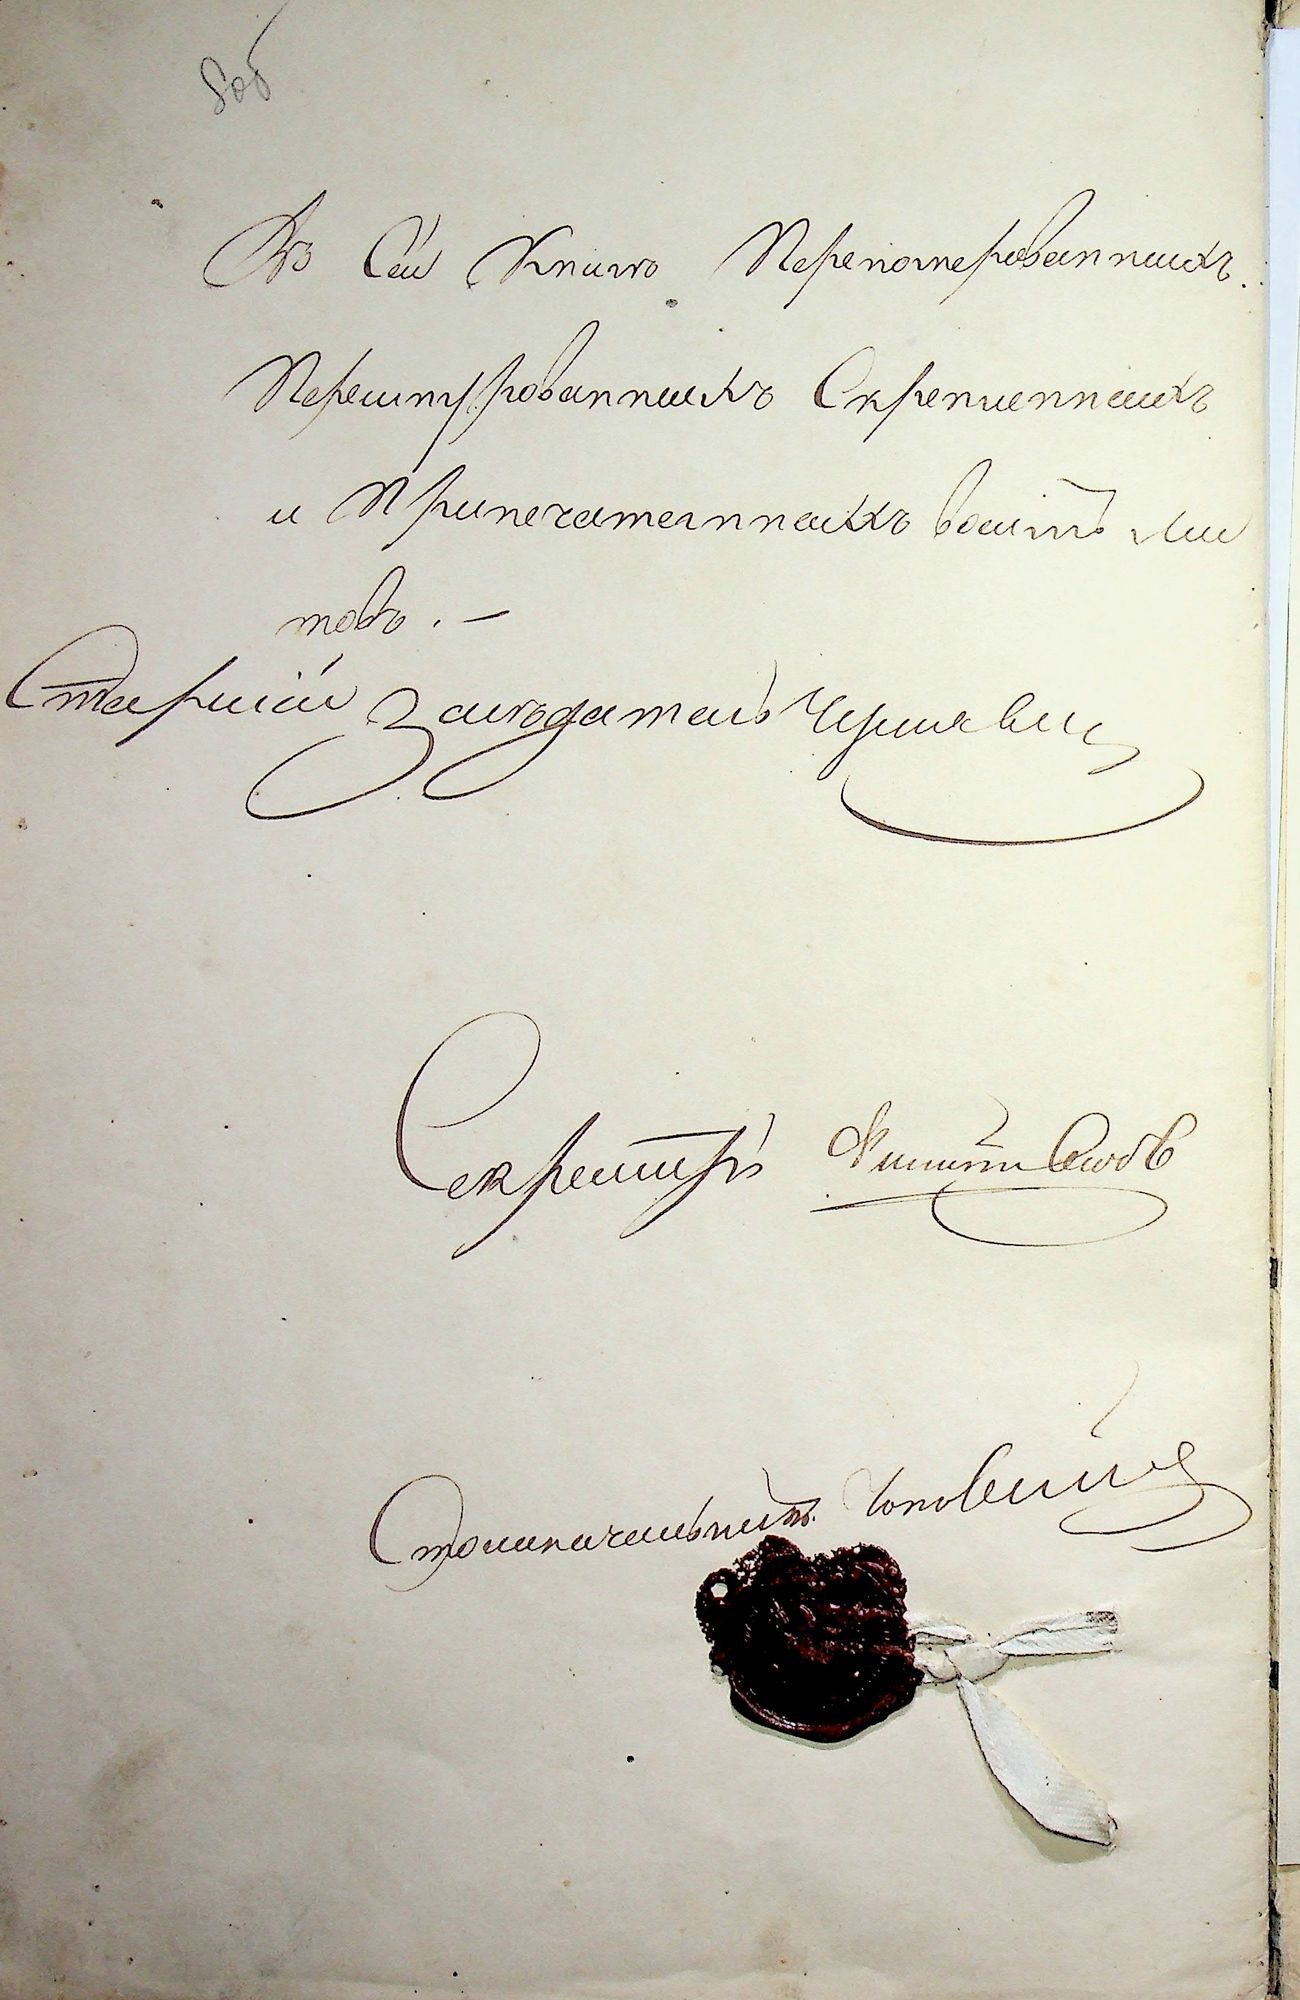 8об
Въ Сей Книгѣ Переномерованныхъ
Перешнурованныхъ Скрепленныхъ
и Припечатанныхъ восемь лис
товъ. —
Старшій Заседатель
Секретарь
Столоначальникъ